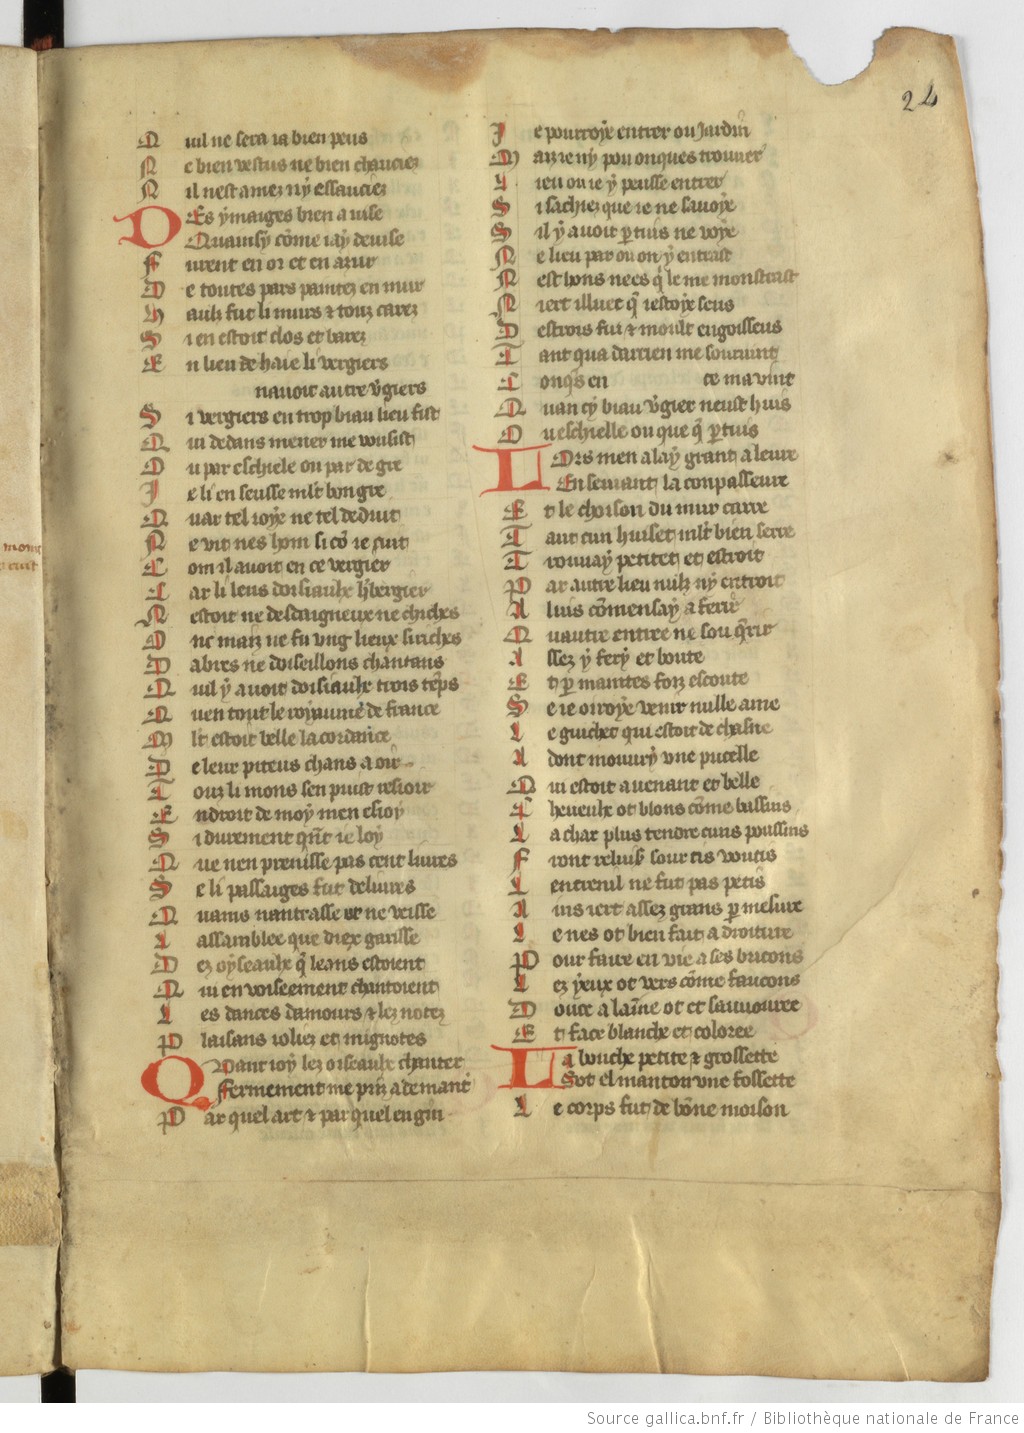 24
Nuil ne sera ia bien peus
Ne bien vestus ne bien chauciez
Nil nest amez ny essauciez
DEs ymaiges bien a vise
Quainsy cõme iay devise
Furent en or et en azur
De toutes pars paintez en mur
Haulz fut li murs & touz carez
Si en estoit clos et barez
En lieu de haie li vergiers
navoit autre vgiers
Si vergiers en trop biau lieu sist
Qui dedans mener me vousist
Ou par eschiele ou par degre
Je li en seusse mlt bon gre
Quar tel ioye ne tel deduit
Ne vit nes hom si cõ ie cuit
Com il avoit en ce vergier
Car li leus doisiaulx hbergier
Nestoit ne desdaigneux ne chiches
Onc maiz ne fu ung lieux si riches
Dabres ne doiseillons chantans
Quil y avoit doisiaulx trois tẽps
Quen tout le royaume de france
Mlt estoit belle lacordance
De leur piteus chans a oir
Touz li mons sen puist resioir
Endroit de moy men esioy
Si durement qnt ie loy
Que nen prenisse pas cent livres
Se li passaiges fut delivres
Quains nantrasse et ne veisse
Lassamblee que diex garisse
Dez oyseaulx q̃ leans estoient
Qui envoiseement chantoient
Les dances damours & lez notez
Plaisans ioliez et mignotes
QUant ioy lez oiseaulx chanter
Fermement me prinz a demant
Par quel art & par quel engin
Je pourroye entrer ou Jardin
Maiz ie ny pou onques trouver
Lieu ou ie y peusse entrer
Si sachiez que ie ne savoye
Sil y avoit ptuis ne voye
Ne lieu par ou on y entrast
Nest hons nees q̃ le me monstrast
Niert illuec q̃ iestoye seus
Destrois fui & moult engoisseus
Tant qua darrien me souvint
Conqs en ce ma vint
Quan cy biau vgier neust huis
Ou eschielle ou que q̃ ptuis
LOrs men alay grant aleure
En seivant la conpasseure
Et le choison du mur carre
Tant cun huiset mlt bien serre
Trouvay petitet et estroit
Par autre lieu nulz ny entroit
A luis cõmensay a ferir
Quautre entree ne sou q̃rir
Assez y fery et boute
Et p maintes foiz escoute
Se ie orroye venir nulle ame
Le guichet qui estoit de chasne
Adont mouvry une pucelle
Qui estoit avenant et belle
Cheveulx ot blons cõme bassins
La char plus tendre cuns poussins
Front reluis sourcis voutis
Lentreuil ne fut pas petis
Ains iert assez grans p mesure
Le nes ot bien fait a droiture
Pour faire envie a ses bricons
Lez yeux ot vers cõme faucons
Douce alaine ot et savouree
Et face blanche et coloree
La bouche petite & grossette
Sot el manton une fossette
Le corps fut de bõne moison
Source gallica.bnf.fr / Bibliothèque nationale de France